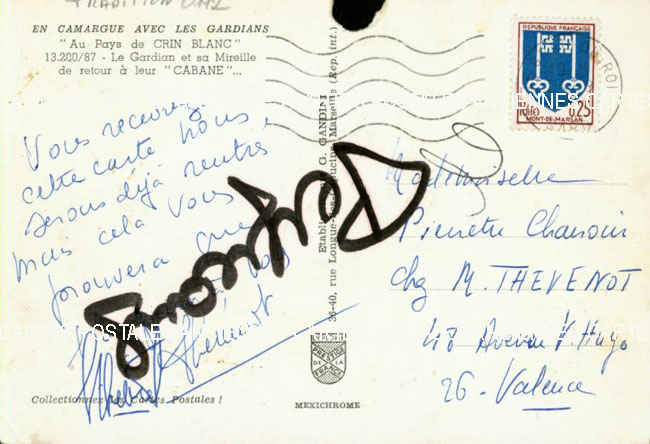 TRADITION
EN CAMARGUE AVEC LES GARDIANS
"Au Pays de CRIN BLANC"
13.200/87 - Le Gardian et sa Mireille
de retour à leur "CABANE"...
Vous recevrez
cette carte nous
serons déjà rentrés
mais cela vous
prouvera que
vous
Thevenot
Collectionnez les Cartes Postales !
G. GANDINI
36-40, rue Longue-des-Capucins, Marseille (Rep. int.)
PRESTIGE
DE LA
FRANCE
MEXICHROME
REPUBLIQUE FRANÇAISE
POSTES
0,25
MONT-DE-MARSAN
Mademoiselle
Pierrette
chez M. THEVENOT
47 Avenue V. Hugo
26 - Valence
CARTE POSTALE ANCIENNES